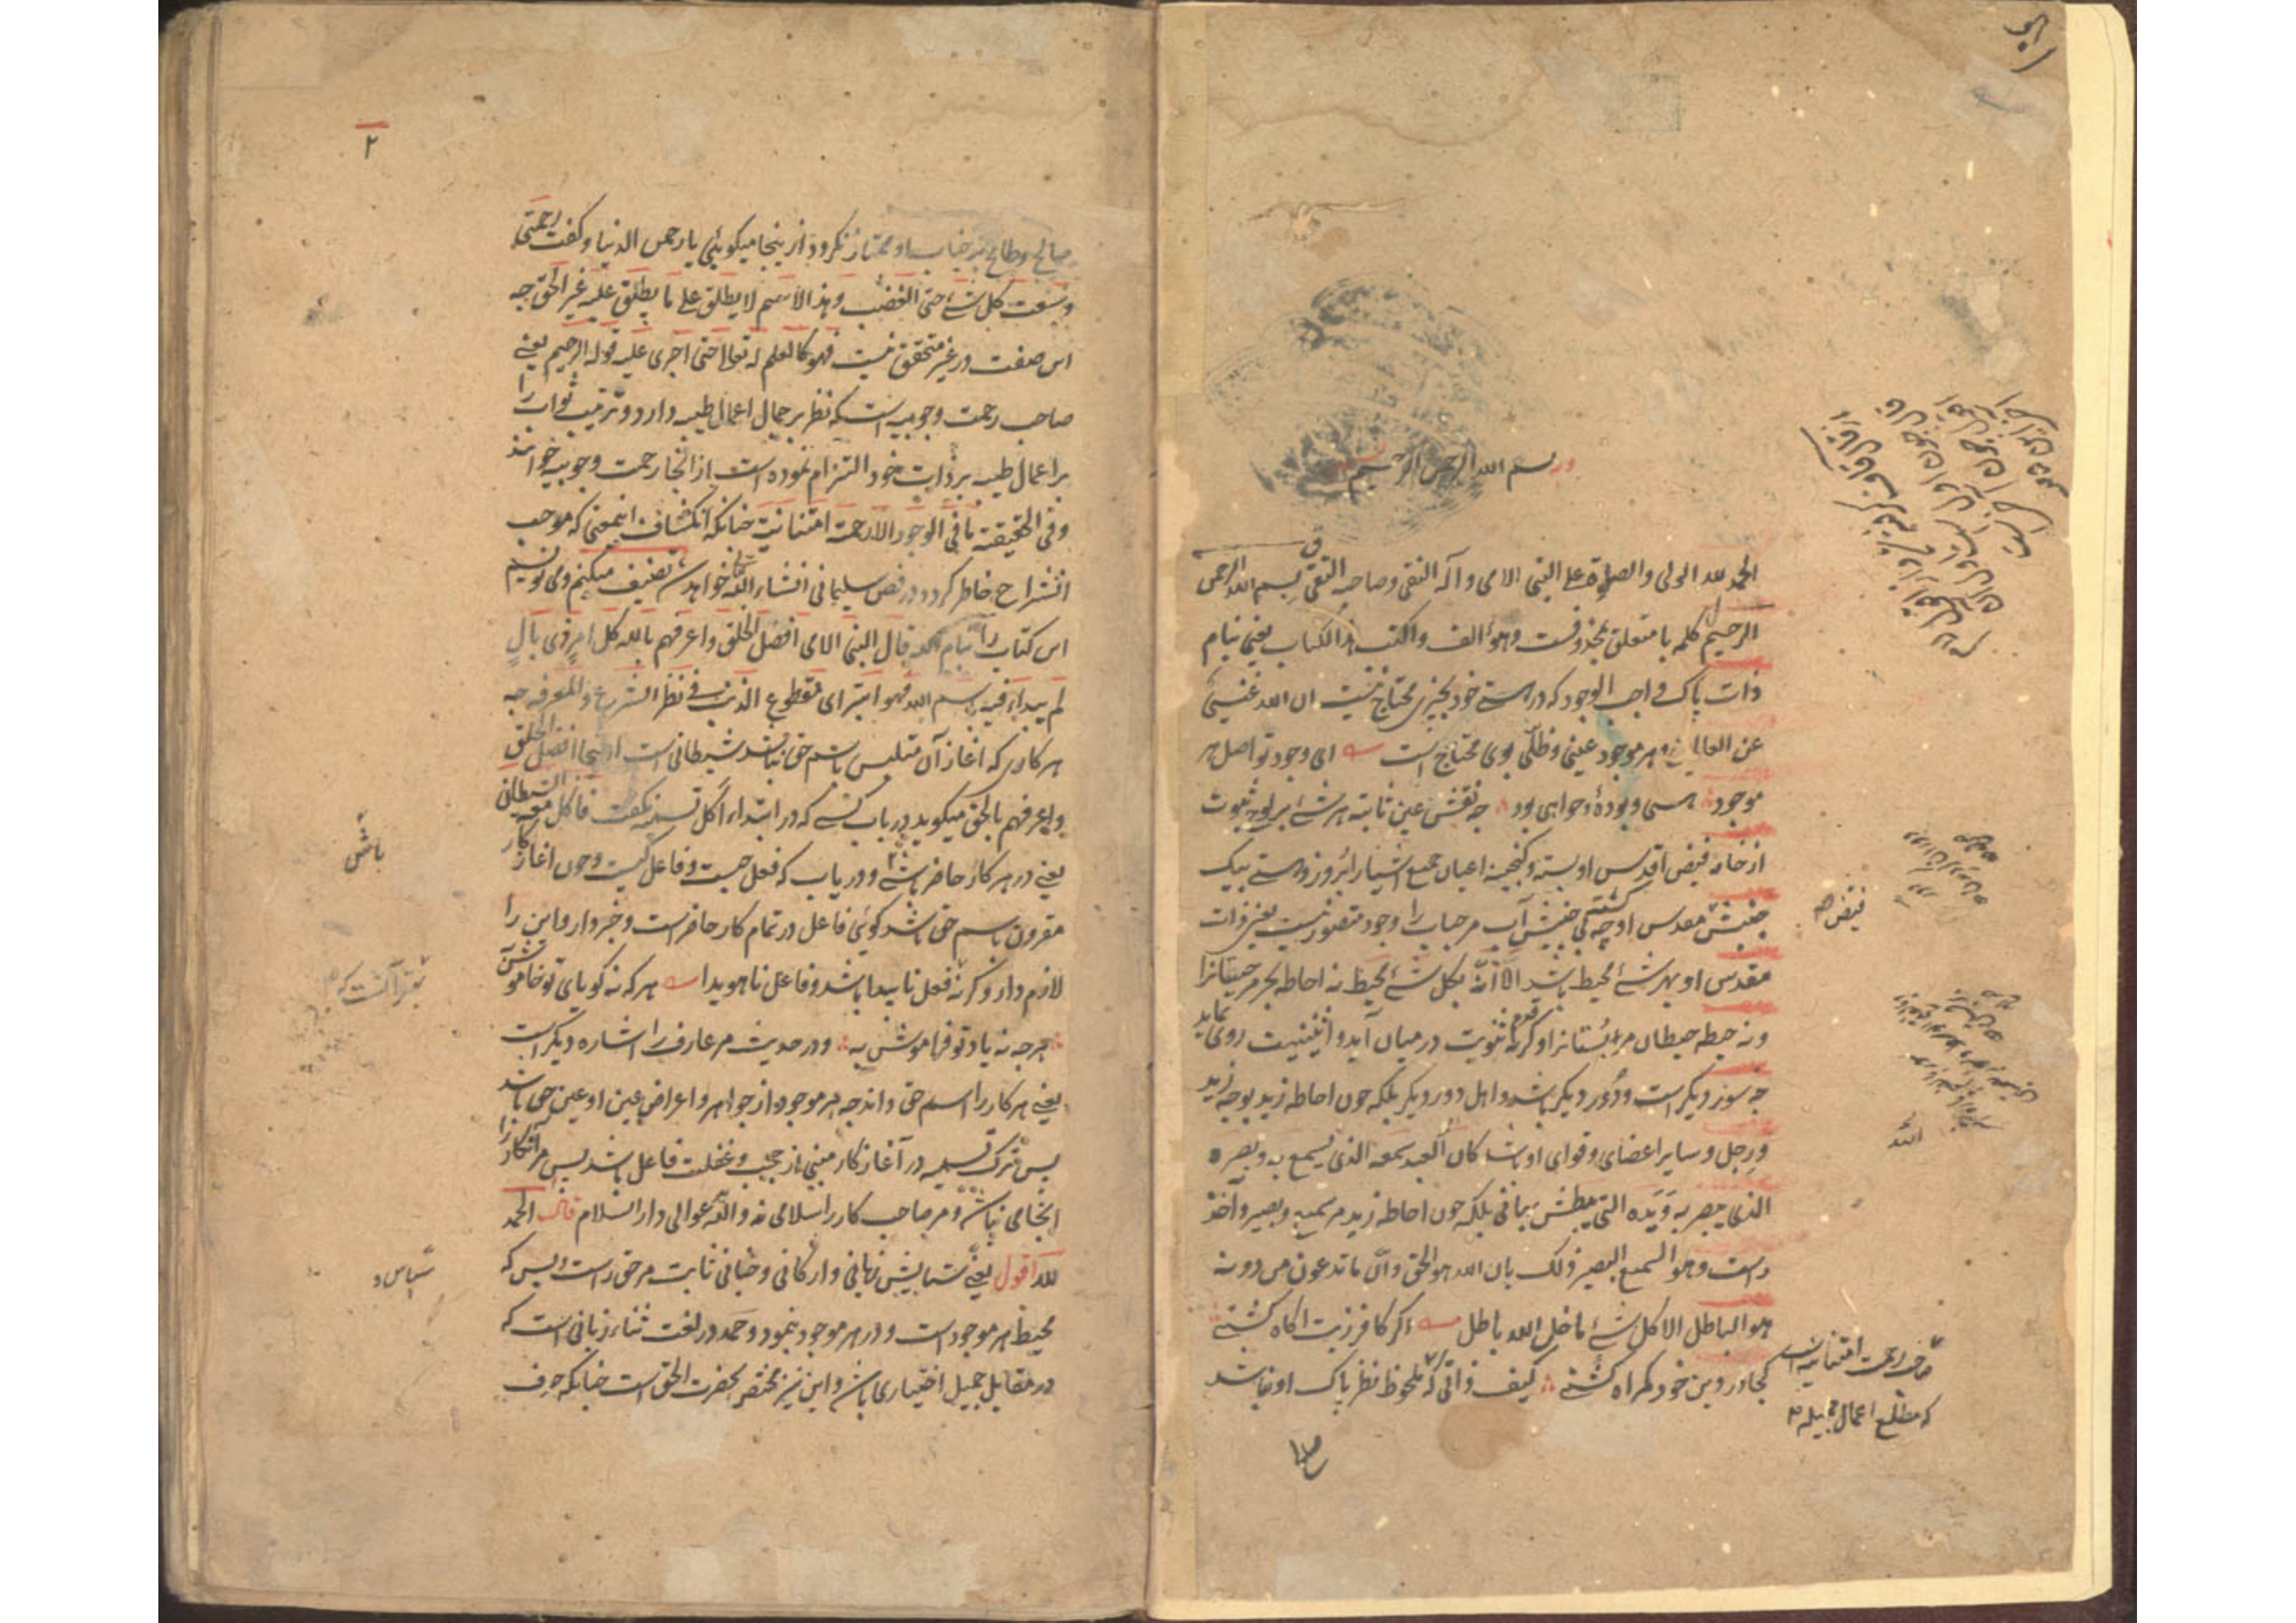 بسم الله الرحمن الرحیم
الحمد لله الولی والصلوة علی النبی الامی وآله النقی وصاحبه التقی بسم الله الرحمن
الرحیم کلمه با متعلق بمحذوفست وهو الف واکتب هذا الکتاب یعنی بنام
ذات پاک واجب الوجود که در هستی خود بچیزی محتاج نیست ان الله غنی
عن العالمین وهر موجود عینی وظلّی بوی محتاج است ای وجود تو اصل هر
موجود هستی و بودهٔ وخواهی بود چه نقش عین ثابته هر شئ بر لوح ثبوت
از خامه فیض اقدس او بسته وگنجینه اعیان جمیع اشیا را بروز هستی بیک
جنبش مقدس او چه بی جنبش آب مر حباب را وجود متصور نیست یعنی ذات
مقدس او بهر شئ محیط باشد الا انّه بکل شئ محیط نه احاطه بحر مر حیتانرا
ونه حیطه حیطان مر بُستانرا وگرنه ثنویت در میان آید و اثنینیت روی نماید
چه سور دیگر است ودُور دیگر باشد واهل دور دیگر بلکه چون احاطه زید بوجه زید
ورجل و سایر اعضای وقوای او باشد کان العبد سمعه الذی یسمع به وبصره
الذی یبصر به ویَده التی یبطش بها فی بلکه چون احاطه زید مر سمیع وبصیر وآخذ
راست وهو السمیع البصیر ذلک بان الله هو الحق وانّ ما تدعون من دونه
هو الباطل الا کل شئ ما خلا الله باطل اگر کافر زبت اگاه گشتی
کجا در دین خود گمراه گشتی کیف ذاتی که ملحوظ نظر پاک او نباشد
فیض
الله
صاحب رحمت امتنانیه است
که مطلع اعمال جمیله
۲
صالح وطالح در جناب او ممتاز نگردد ازینجا میگویی یا رحمن الدنیا وگفت رحمتی
وسعت کل شئ حتی الغضب وهذا الاسم لا یطلق علی ما یطلق علیه غیر الحق چه
این صفت در غیر متحقق نیست فهو کالعلم له تعالی حتی اجری علیه قوله الرحیم یعنی
صاحب رحمت وجوبیه است که نظر بر جمال اعمال طیبه دارد وترتیب ثواب را
بر اعمال طیبه بر ذات خود التزام نموده است از انجا رحمت وجوبیه خوانند
وفی الحقیقة ما فی الوجود الا رحمة امتنانیة چنانکه انکشاف اینمعنی که موجب
انشراح خاطر گردد در فص سلیمانی انشاء الله خواهد شد تصنیف میکنم ومی نویسم
این کتاب را بنام الله قال النبی الامی افضل الخلق واعرفهم بالله کل امرٍ ذی بالٍ
لم یبداء فیه باسم الله فهو ابتر ای مقطوع الذنب فی نظر الشرع والمعرفه چه
هر کاری که اغاز آن متلبس باسم حق نباشد شیطانی است اینجا افضل الخلق
واعرفهم بالحق میگوید در باب کسی که در ابتداء اکل تسمیه نگفت فاکل معه الشیطان
یعنی در هر کار حاضر باشی ودریاب که فعل چیست وفاعل کیست وچون اغاز کار
مقرون باسم حق باشد گوئی فاعل در تمام کار حاضر است وخبردار واین را
لازم دار وگرنه فعل ناپیدا باشد وفاعل ناهویدا هر که نه گویای تو خاموش به
هرچه نه یاد تو فراموش به ودر حدیث مر عارف را اشاره دیگر است
یعنی هر کار را اسم حق داند چه هر موجود از جواهر واعراض عین او عین حق باشد
پس ترک تسمیه در آغاز کار مبنی از حجب وغفلت فاعل باشد پس مر آنکار را
انجامی نباشد ومر صاحب کار را سلامی نه والله یدعوا الی دار السلام قال الحمد
لله اقول یعنی ستایش زبانی وارکانی وجنانی ثابت مر حق راست وبس که
محیط هر موجود است ودر هر موجود بنمود وحمد در لغت ثناء زبانی است که
در مقابل جمیل اختیاری باشد واین نیز مختص بحضرت الحق است چنانکه حرف
باشی
سپاس و